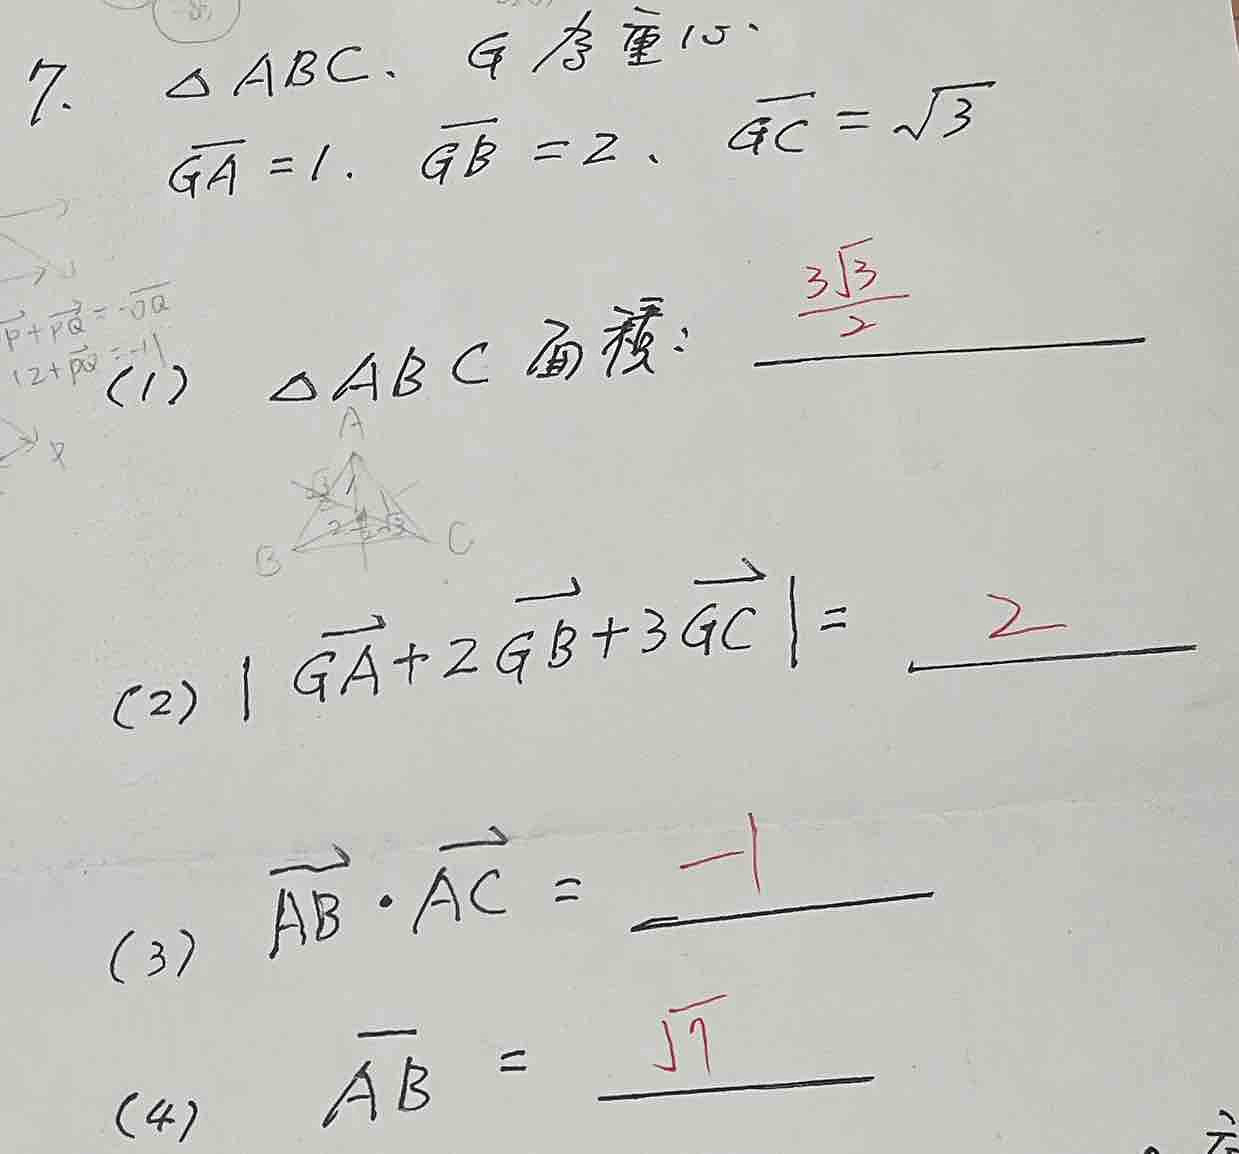 7. △ABC、G為重心.
GA=1. GB=2、GC=√3
P+PQ=-OQ
(1) △ABC面積: 3√3/2
A
B C
(2) |GA+2GB+3GC|= 2
(3) AB·AC= -1
(4) AB= √7